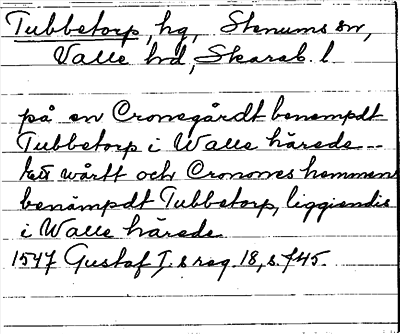 Tubbetorp, hg, Stenums sn,
Valle hd, Skarab. l.
på en Cronegårdt benempdt
Tubbetorp i Walle härede --
ett wårtt och Cronones hemman
benämpdt Tubbetorp, liggiendis
i Walle härede
1547 Gustaf I:s reg. 18, s. 745.